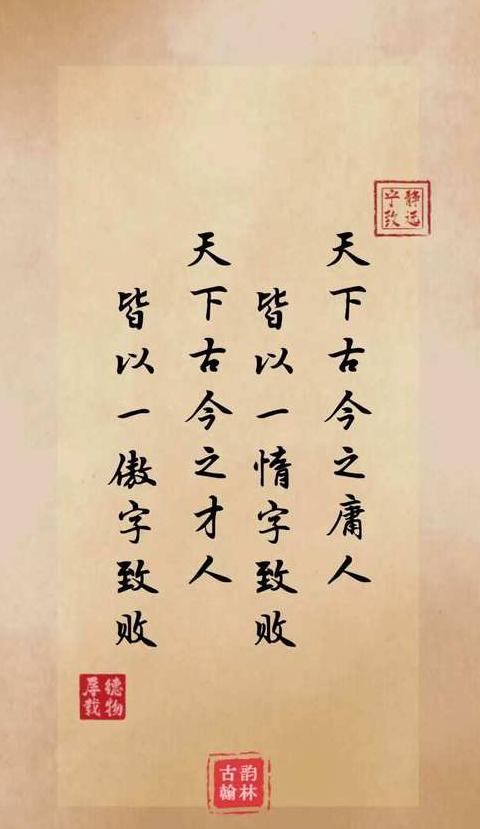 宁静
致远
天下古今之庸人
皆以一惰字致败
天下古今之才人
皆以一傲字致败
厚德
载物
古韵
翰林